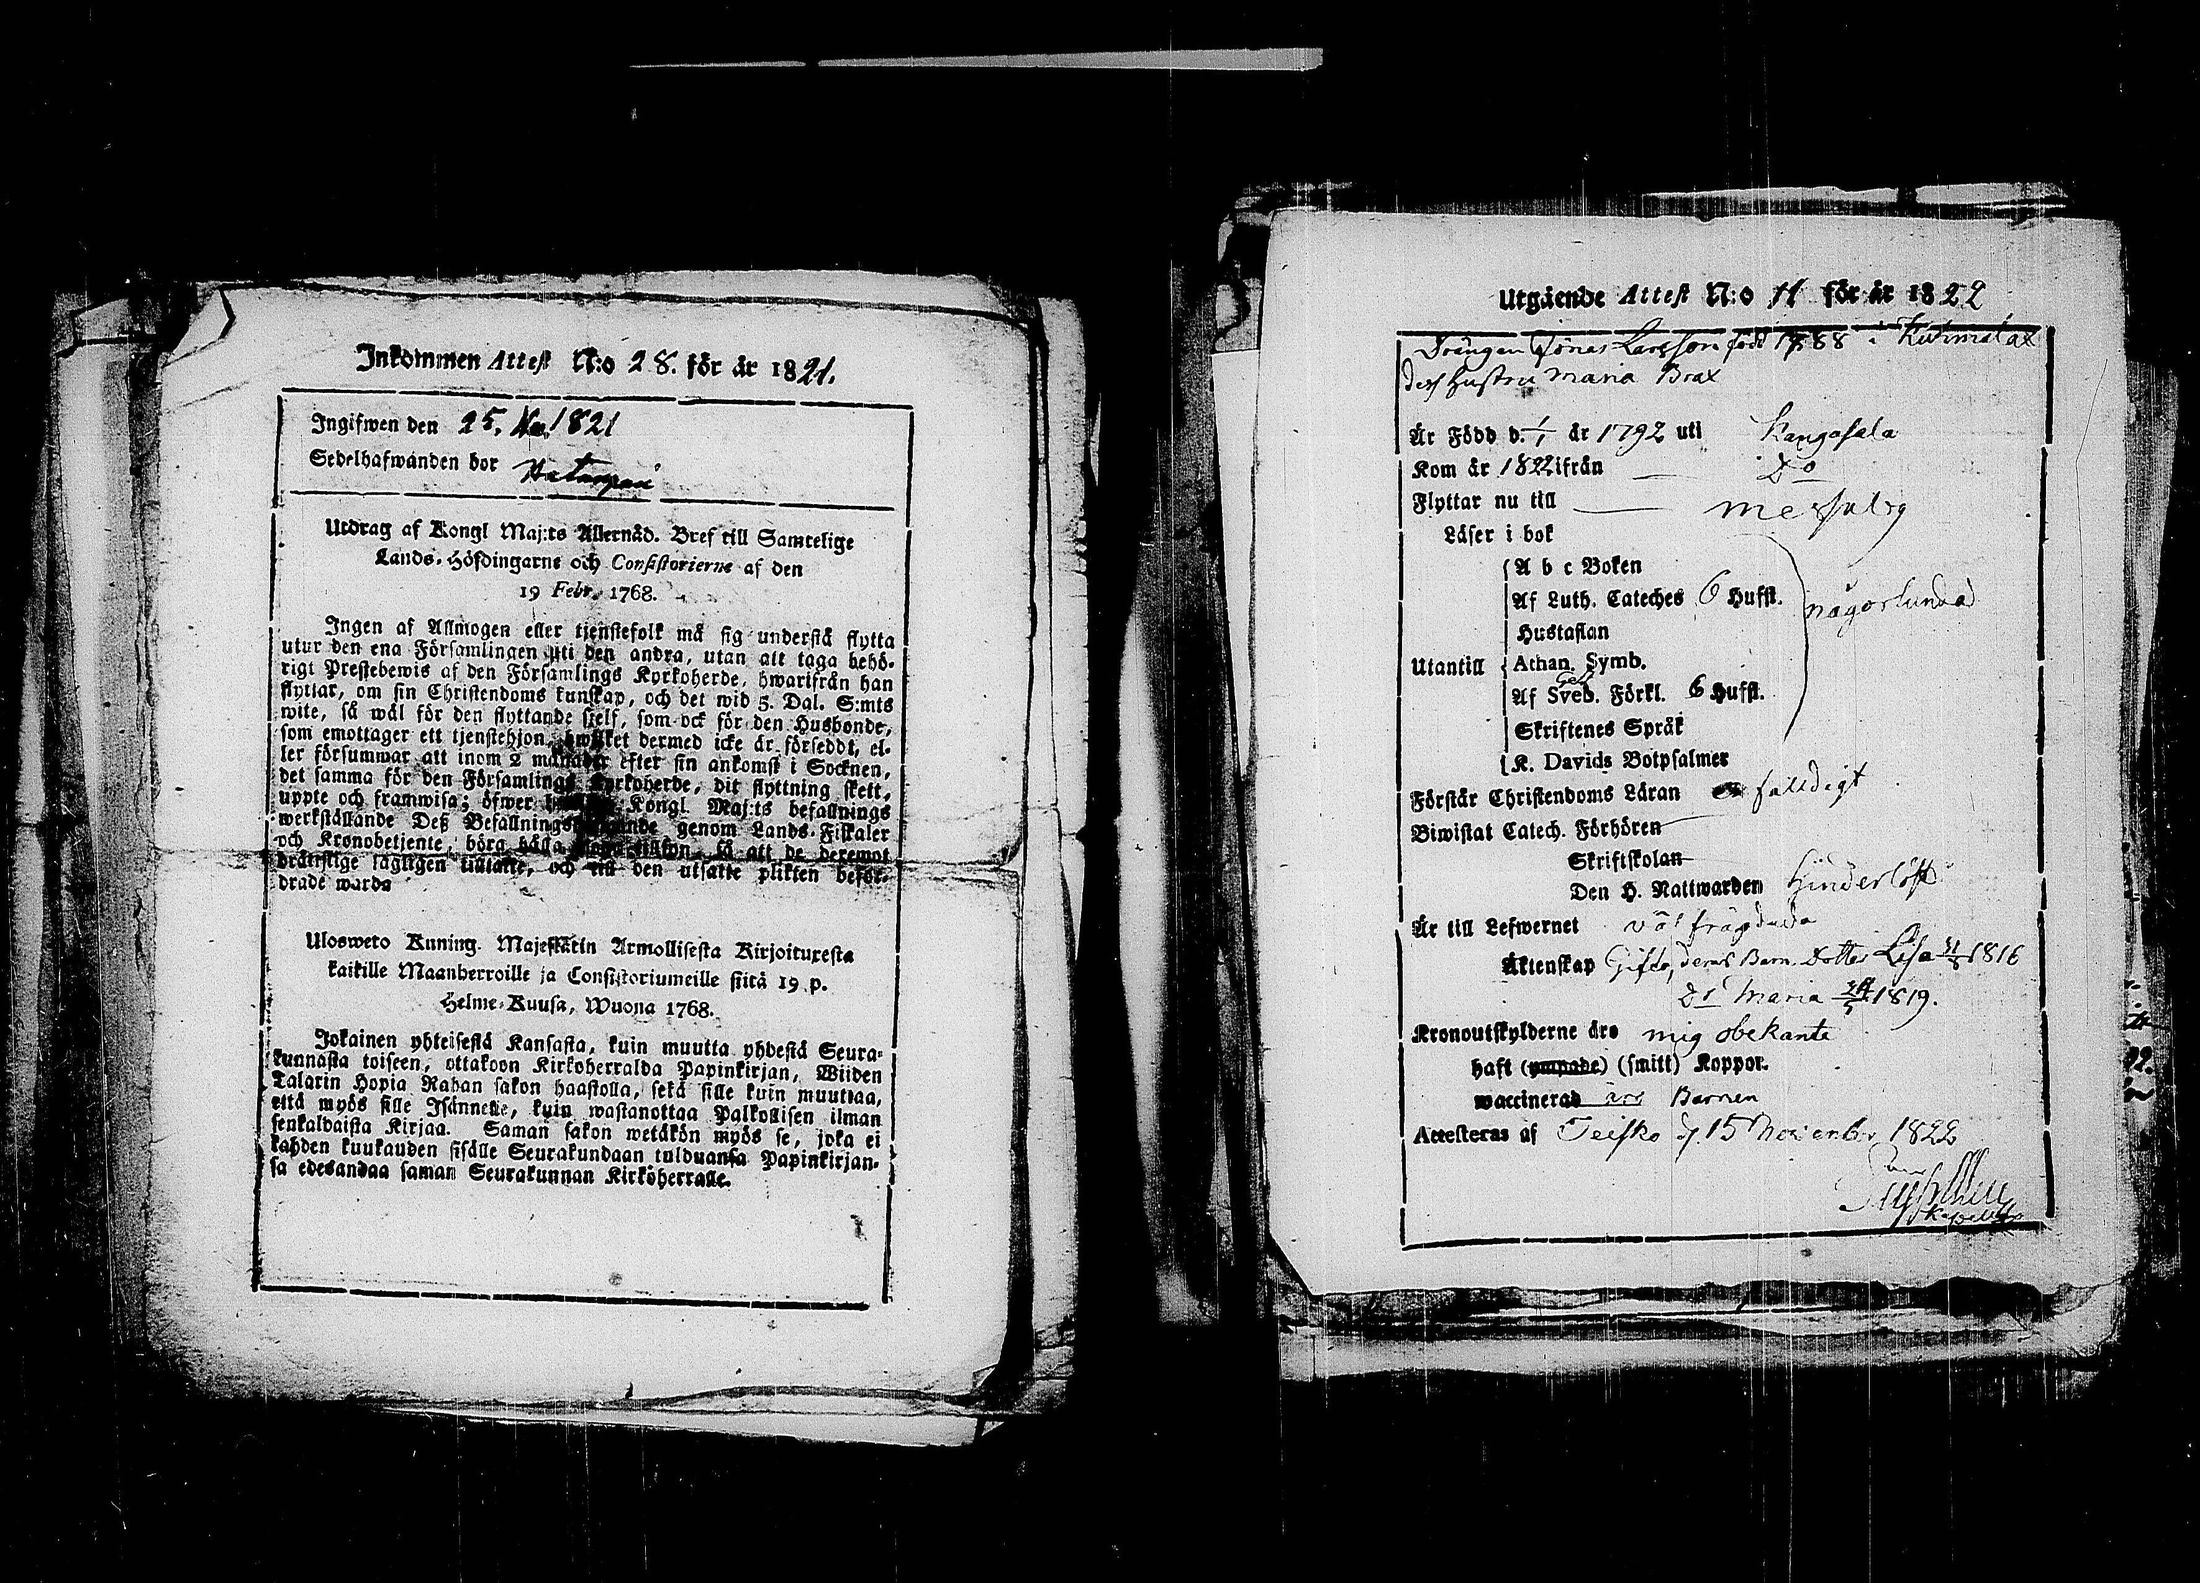 Inkommen Attest N:o 28. för år 1821.
Ingifwen den 25. 1821
Sedelhafwanden bor Hatanpää
Utdrag af Kongl Maj:ts Allernåd. Bref till Samtelige
Lands-Höfdingarne och Consistorierne af den
19 Febr. 1768.
Ingen af Allmogen eller tjenstefolk må sig understå flytta
utur den ena Församlingen uti den andra, utan att taga behö-
rigt Prestebewis af den Församlings Kyrkoherde, hwarifrån han
flyttar, om sin Christendoms kunskap, och det wid 5. Dal. S:mts
wite, så wäl för den flyttande sjelf, som ock för den Husbonde,
som emottager ett tjenstehjon, hwilket dermed icke är försedt, el-
ler försummar att inom 2 månader efter sin ankomst i Socknen,
det samma för den Församlings Kyrkoherde, dit flyttning skett,
uppte och framwisa; öfwer Kongl. Maj:ts befallnings
werkställande Deß genom Lands-Fiskaler
och Kronobetjente, böra hålla så att de deremot
bråttslige lagligen tilltalte, och till den utsatte plikten befor-
drade warda
Ulosweto Kuning. Majestätin Armollisesta Kirjoituxesta
kaikille Maanherroille ja Consistoriumeille siitä 19 p.
Helme-Kuusa, Wuona 1768.
Jokainen yhteisestä Kansasta, kuin muutta yhdestä Seura-
kunnasta toiseen, ottakoon Kirkoherralda Papinkirjan, Wiiden
Talarin Hopia Rahan sakon haastolla, sekä sille kuin muuttaa,
että myös sille Isännelle, kuin wastanottaa Palkollisen ilman
senkaldaista Kirjaa. Saman sakon wetäkön myös se, joka ei
kahden kuukauden sisälle Seurakundaan tulduansa Papinkirjan-
sa edesandaa saman Seurakunnan Kirkoherralle.
Utgående Attest N:o 11 för år 1822
Drängen Jonas Larsson född 1788 i
dess hustru Maria Brax
Är Född d. 1/1 år 1792 uti Kangasala
Kom år 1822 ifrån Do
Flyttar nu till Messuby
Läser i bok
A b c Boken
Af Luth. Cateches 6 Hufst. någorlunda
Hustaflan
Utantill Athan. Symb.
Af Sveb. Förkl. 6 Hufst.
Skriftenes Språk
K. Davids Botpsalmer
Förstår Christendoms Läran enfalldigt
Biwistat Catech. Förhören
Skriftskolan
Den H. Nattwarden Hinderlöst
Är till Lefwernet väl frägdade
Äktenskap Gifta, deras Barn. Dotter Lisa 1816
Do Maria 1819.
Kronoutskylderne äro mig obekante
haft (ympade) (smitt) Koppor.
waccinerad äro Barnen
Attesteras af Teisko d. 15 November 1822